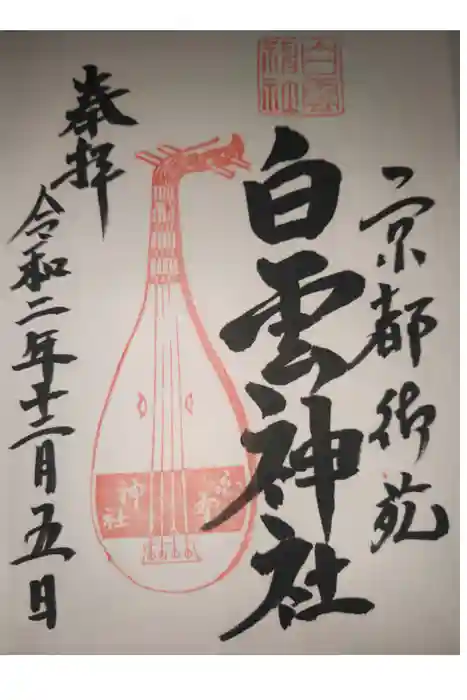 京都御苑
白雲神社
奉拝
令和二年十二月五日
白雲
神社
神社